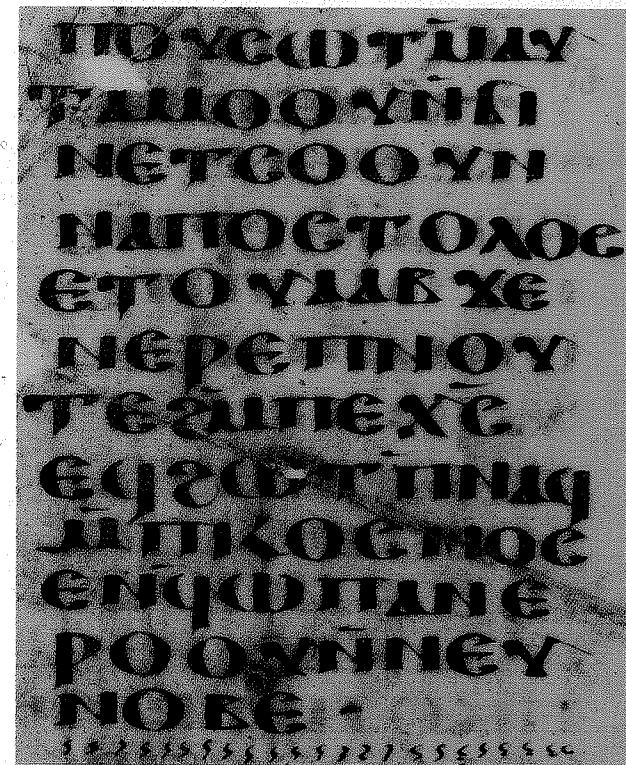 ⲡⲟⲩⲥⲱⲧⲙ̄ⲁⲩ
ⲧⲁⲙⲟⲟⲩⲛ̄ϭⲓ
ⲛⲉⲧⲥⲟⲟⲩⲛ
ⲛⲁⲡⲟⲥⲧⲟⲗⲟⲥ
ⲉⲧⲟⲩⲁⲁⲃϫⲉ
ⲛⲉⲣⲉⲡⲛⲟⲩ
ⲧⲉϩⲙ̄ⲡⲉⲭ̄ⲥ̄
ⲉϥϩⲱⲧⲡ̄ⲛⲁϥ
ⲙ̄ⲡⲕⲟⲥⲙⲟⲥ
ⲉⲛϥ̄ⲱⲡⲁⲛⲉ
ⲣⲟⲟⲩⲛ̄ⲛⲉⲩ
ⲛⲟⲃⲉ·